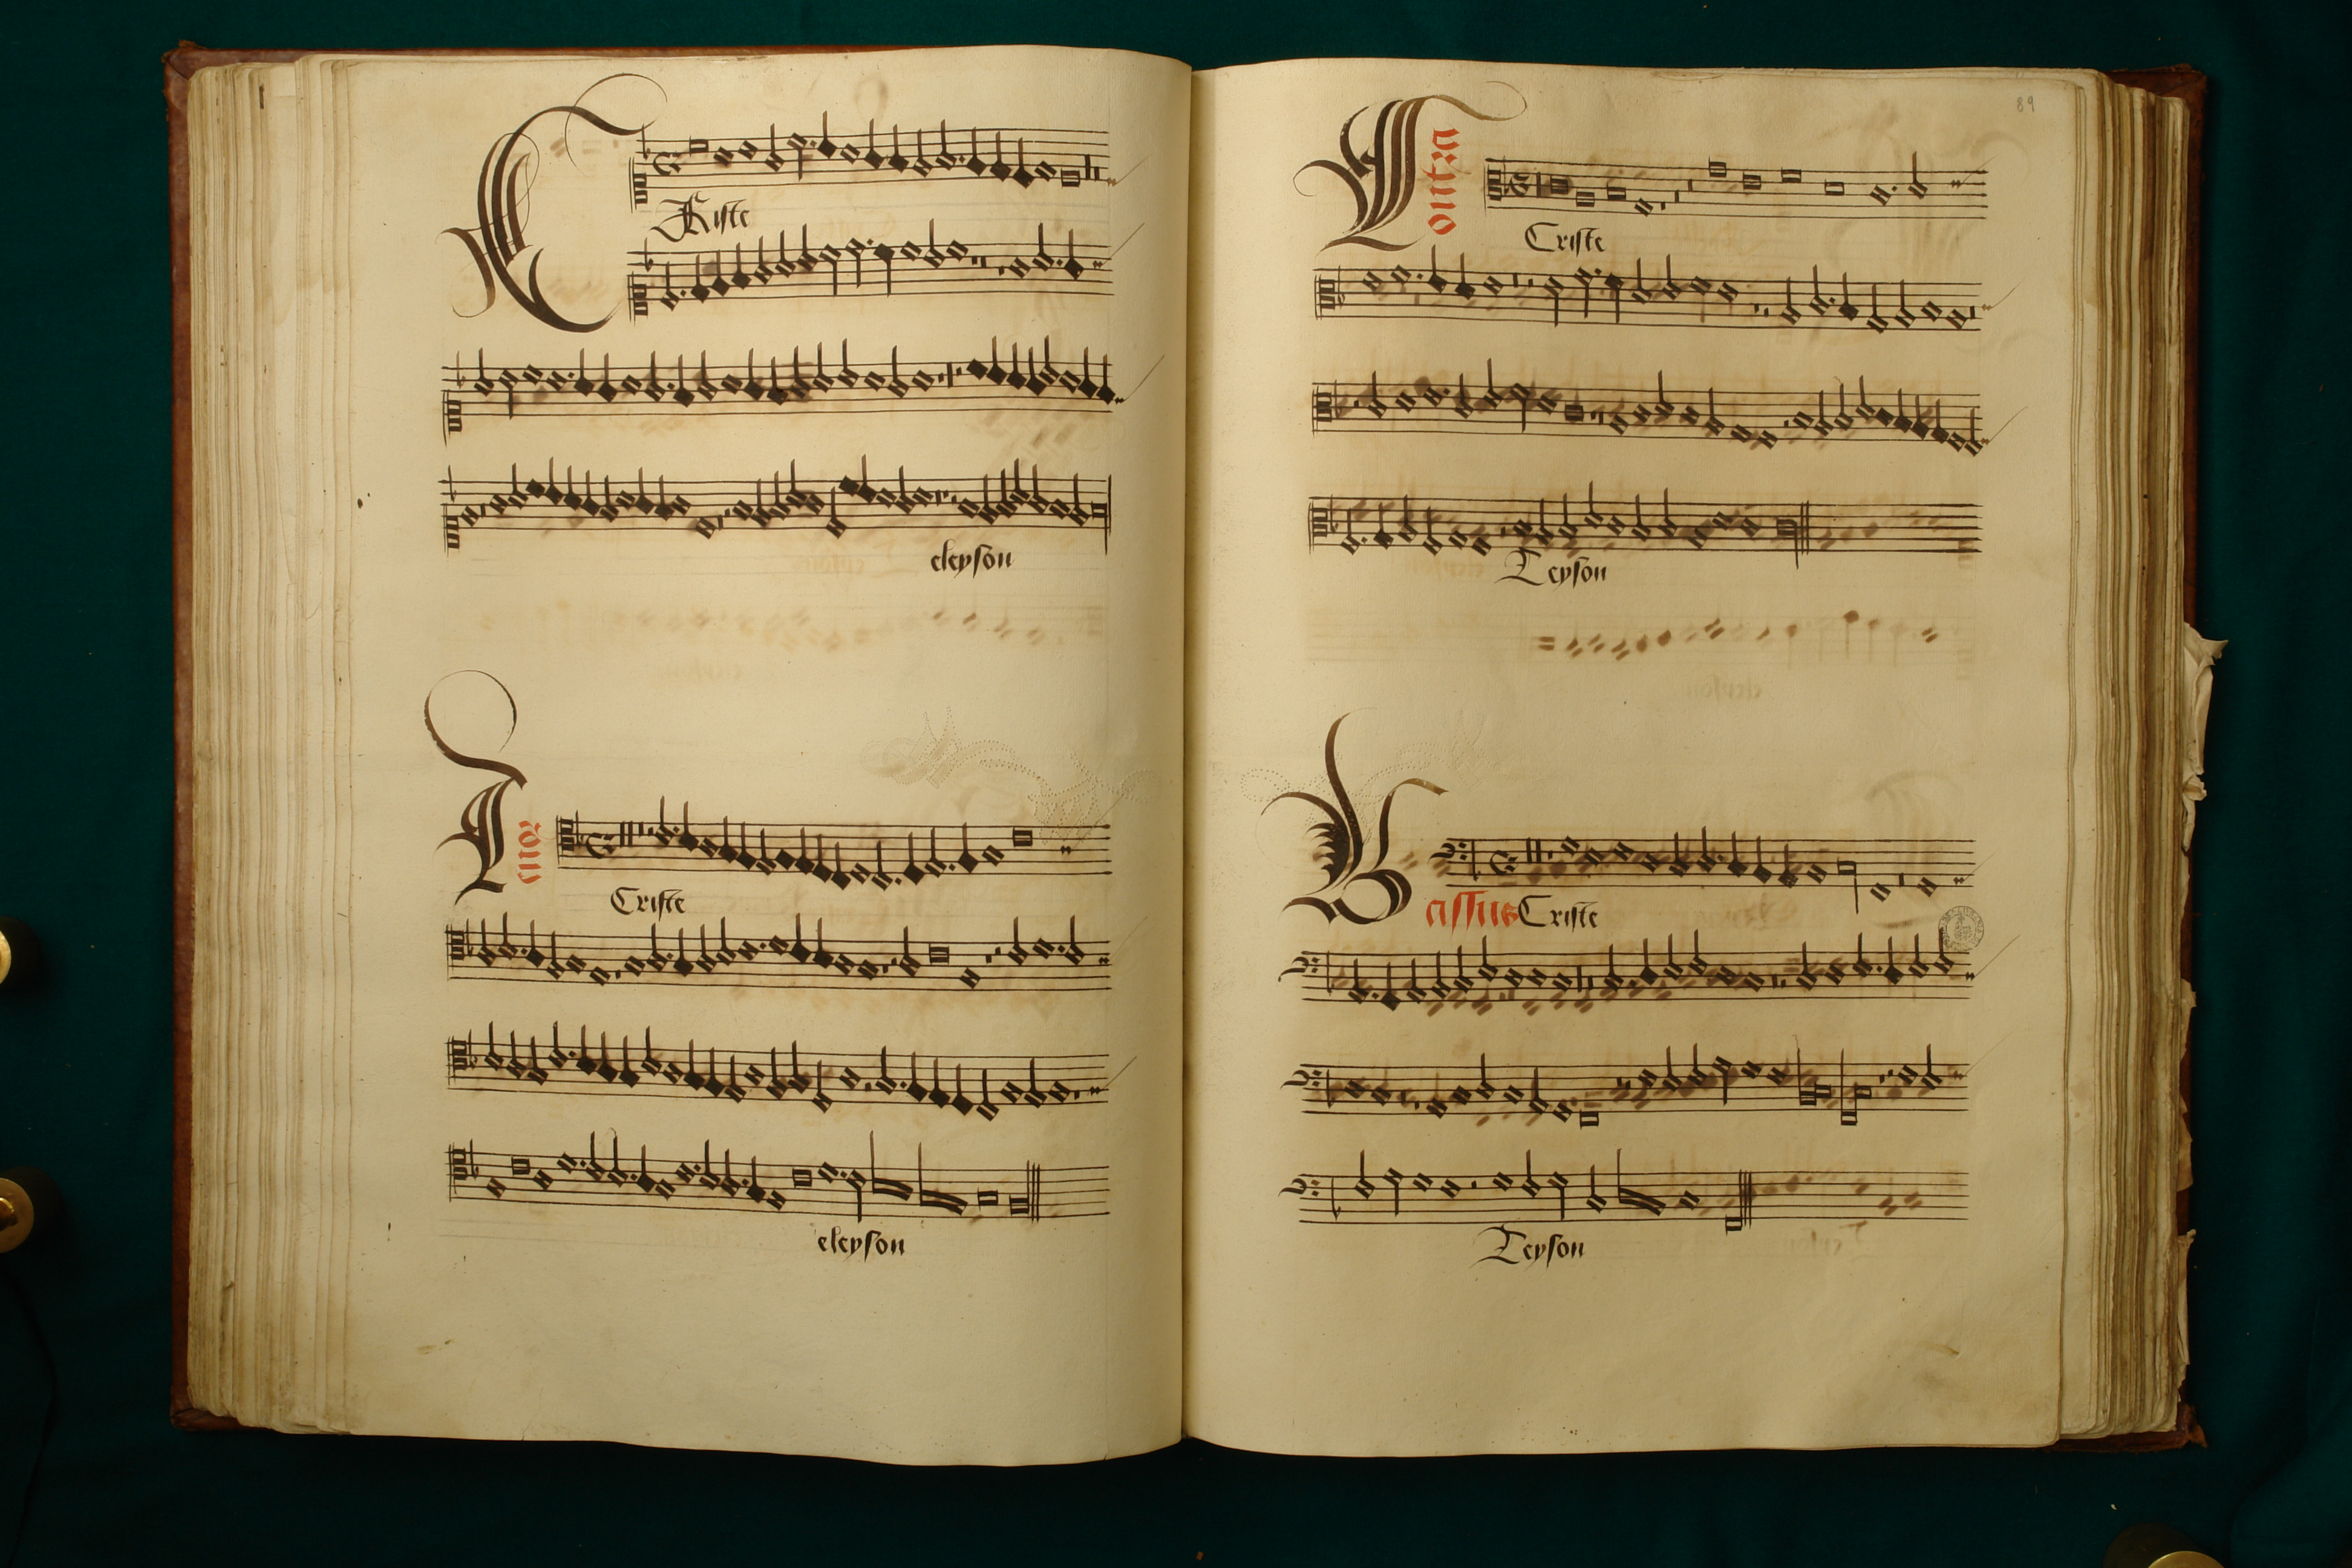 CRiste
eleyson
Tenor
Criste
eleyson
89
Contra
Criste
Leyson
Bassus Criste
Leyson